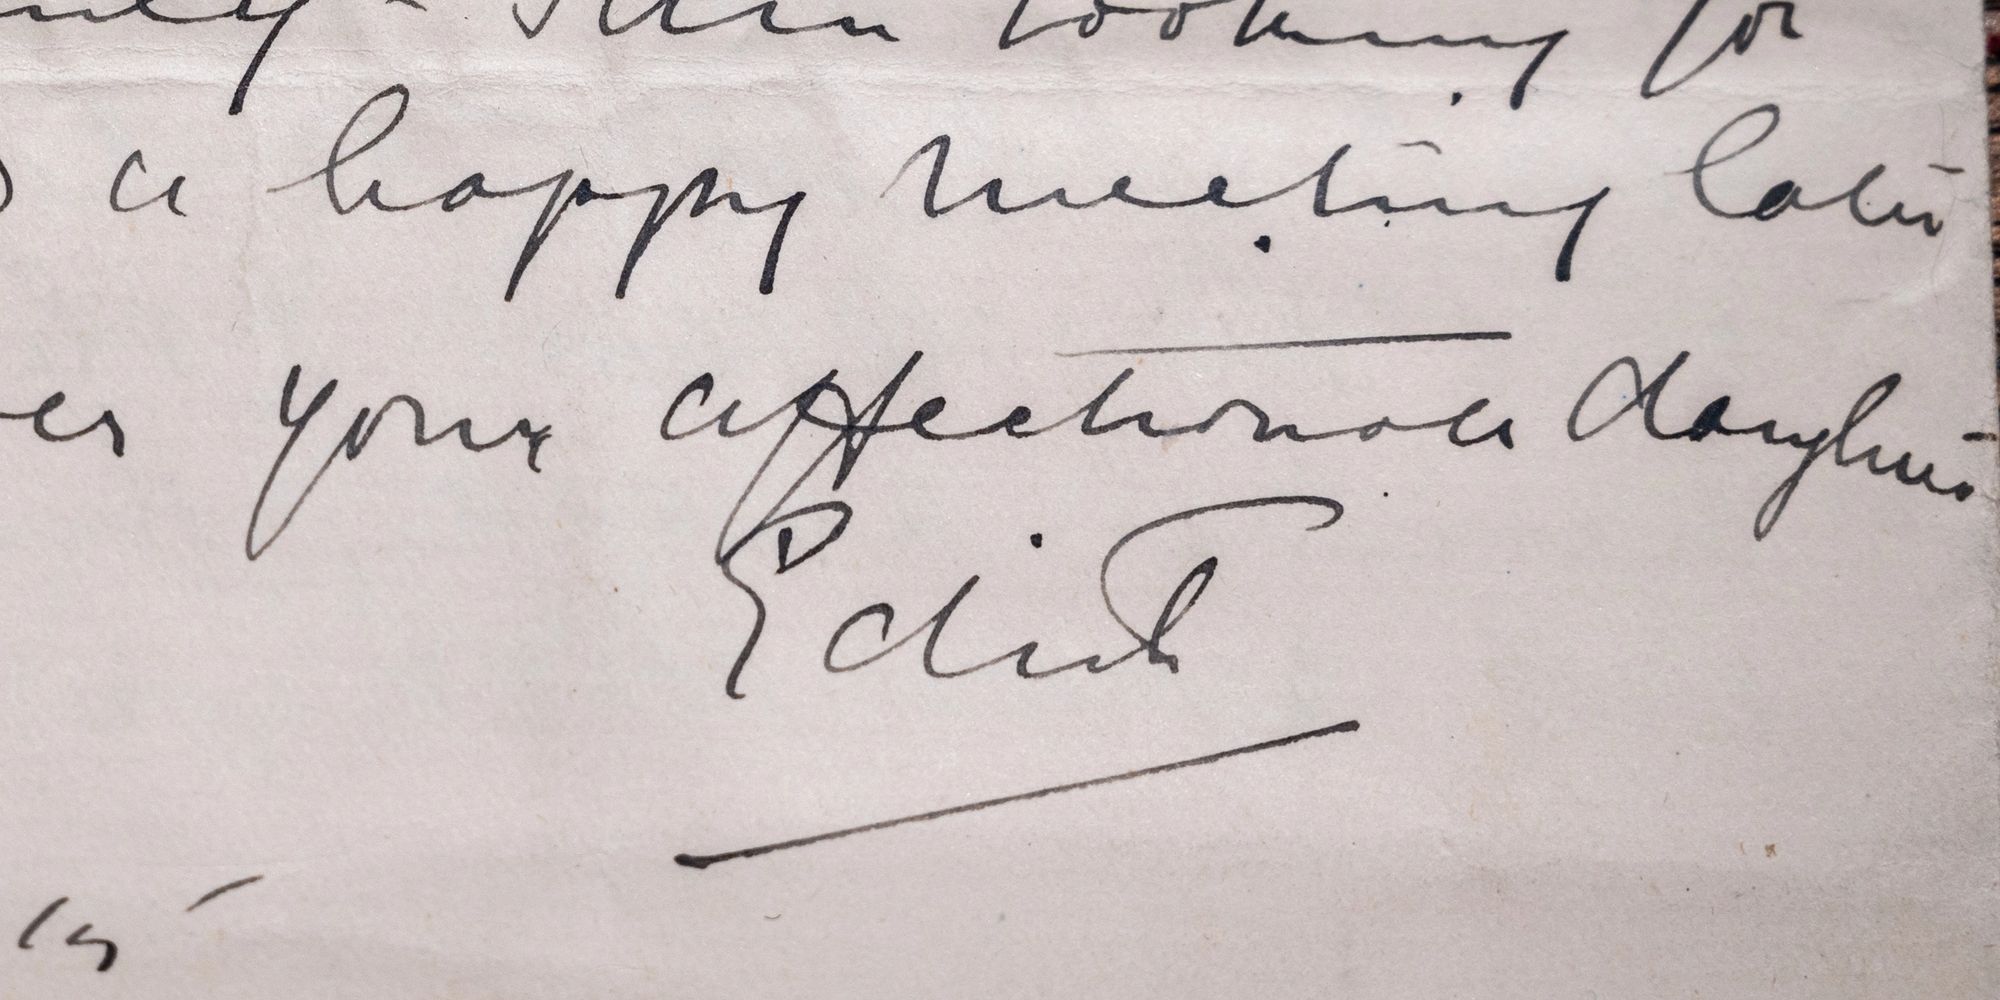 looking for
a happy meeting later
your affectionate daughter
Edith
15